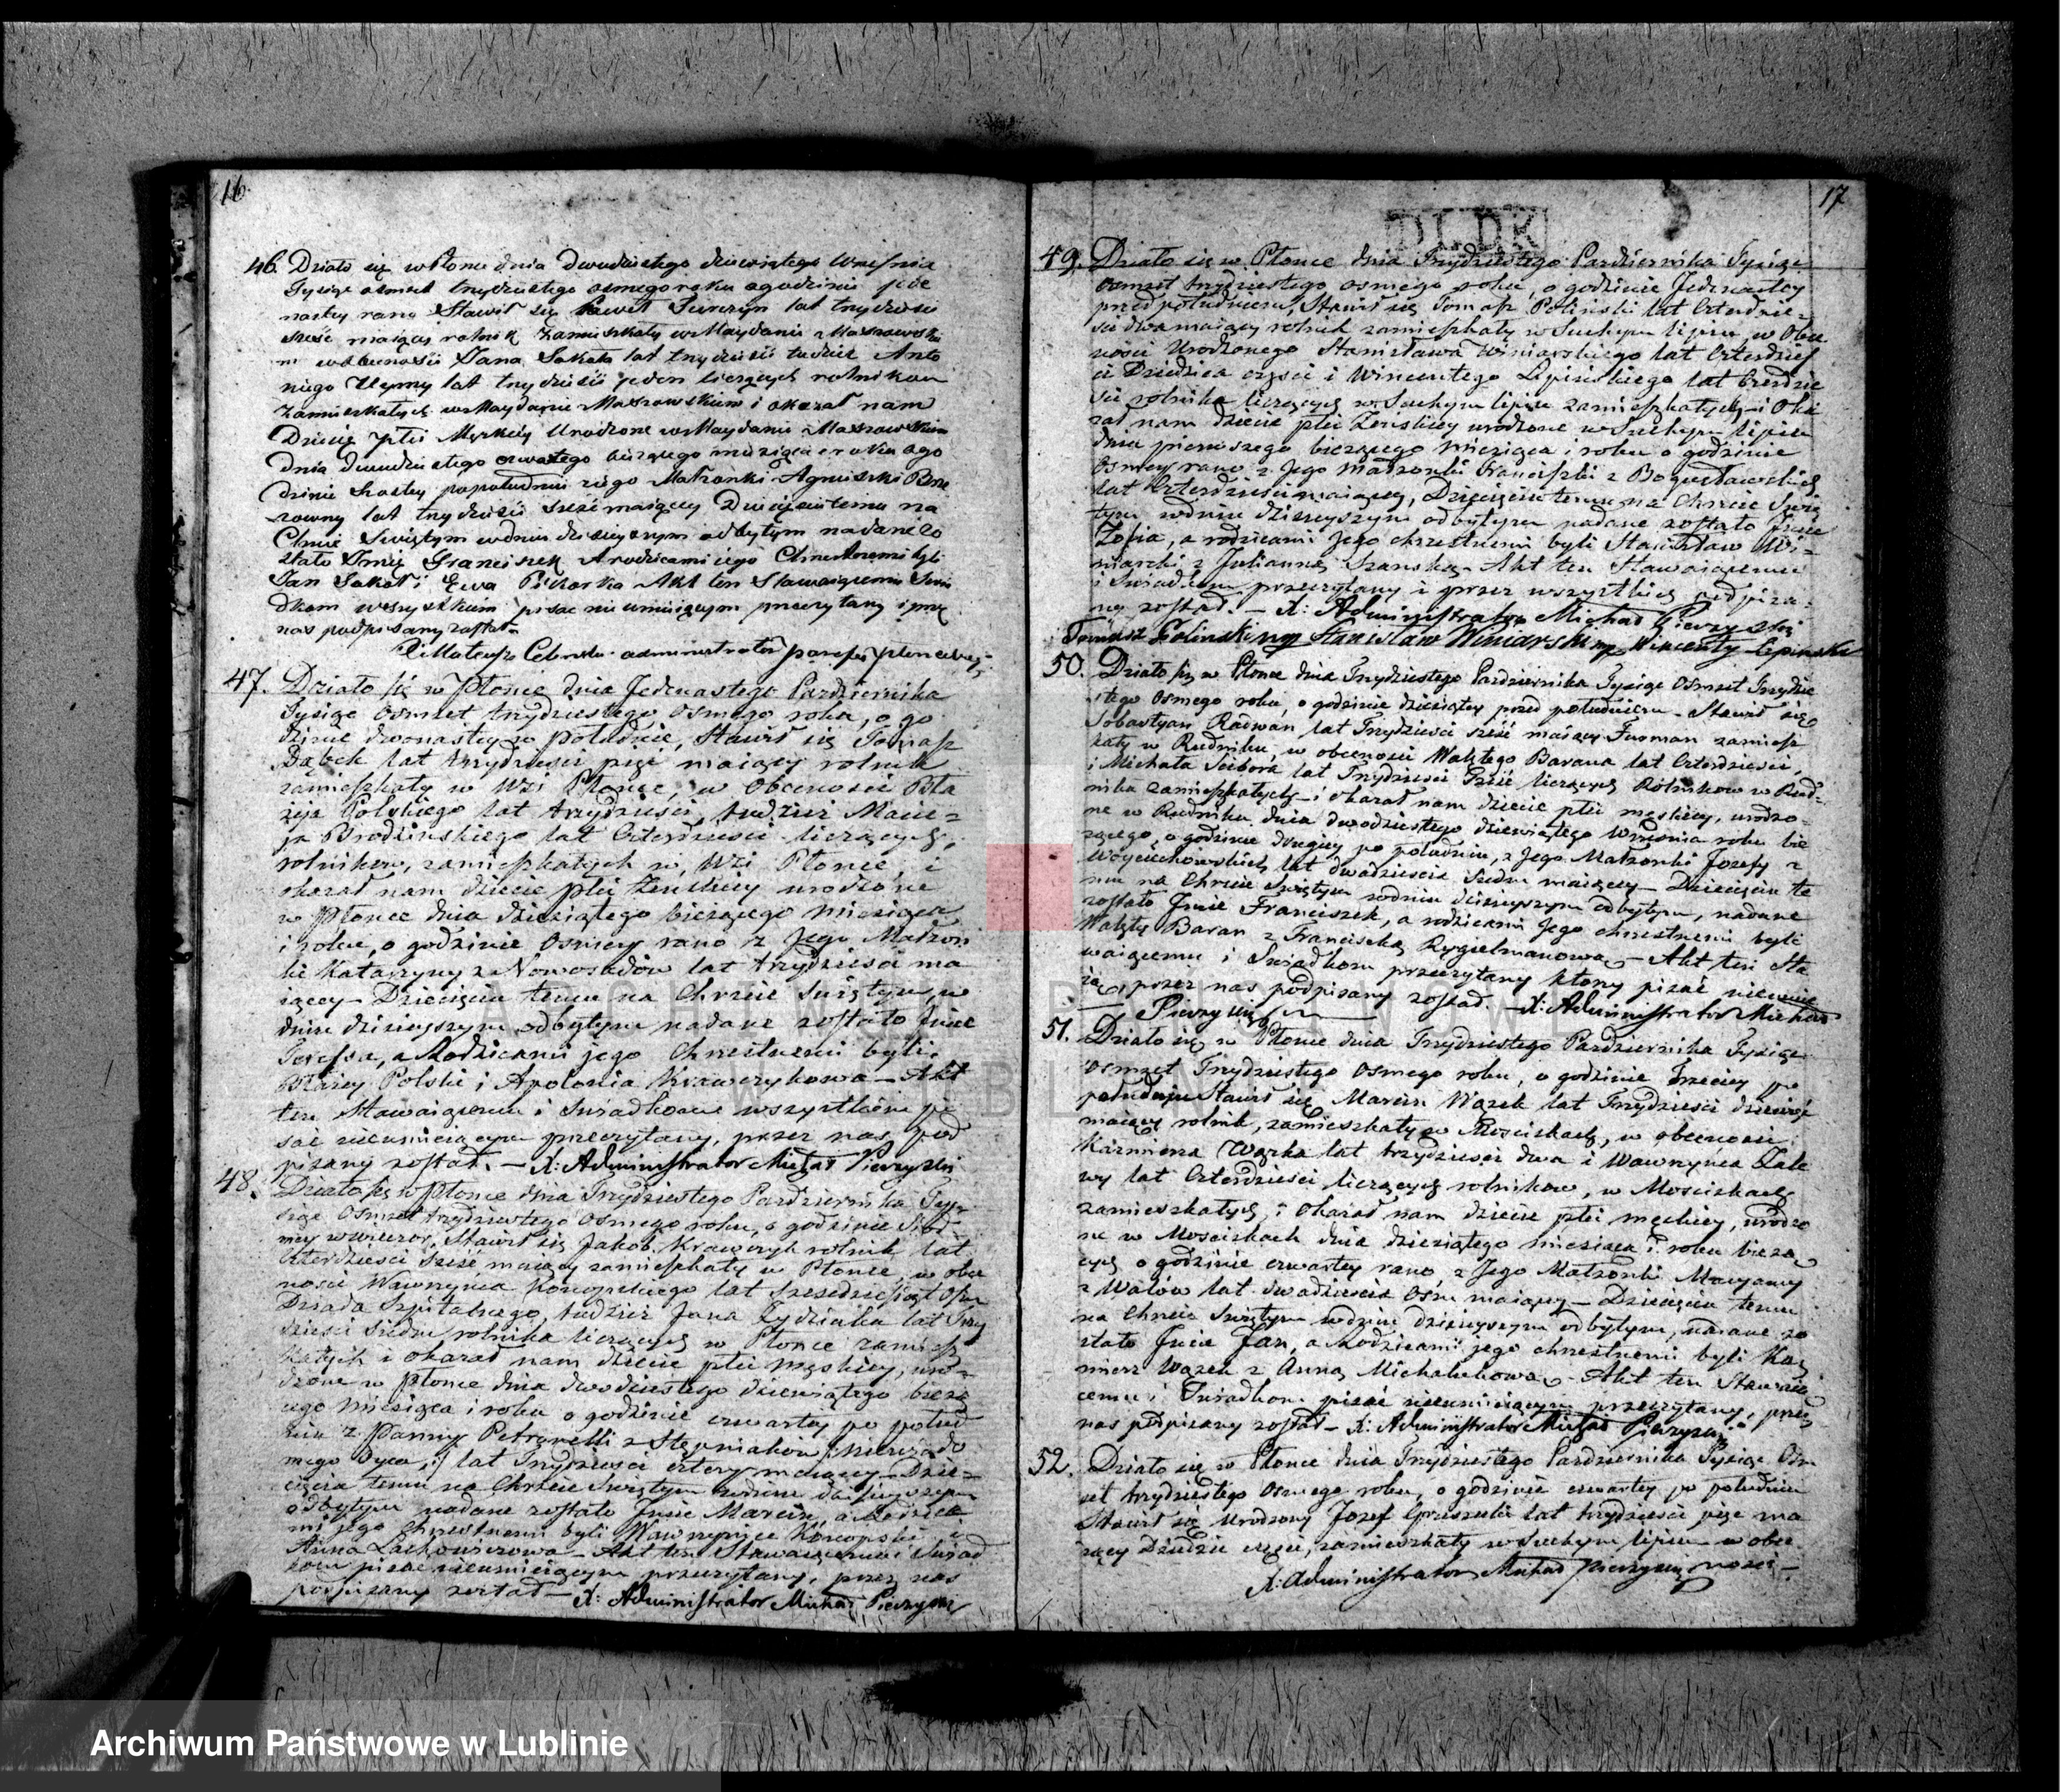 16.
46. Działo się w Płonce dnia Dwudziestego dziewiątego Wrzesnia
Tysiąc osmset trzydziestego osmego roku ogodzinie jede
nastey rano Stawił się Paweł Furczyn lat trzydziesci
sześć maiący rolnik zamieszkały w Maydanie Maszowski
m w obecnosci Jana Sokoła lat trzydziesci tudzież Anto
niego lat trzydziesci jeden liczących rolnikow
zamieszkałych w Maydanie Maszowskim i okazał nam
Dziecię płci Męzkiey Urodzone w Maydanie Maszowskim
dnia dwudziestego czwartego bieżącego miesiąca i roku ogo
dzinie szostey popołudniu z iego Małzonki Agnieszki
lat trzydziesci sześć maiącey Dziecięciu temu na
Chrcie Swiętym w dniu dzisieyszym odbytym nadane zo
stało Imię Franciszek A rodzicami iego Chrzestnemi byli
Jan Sokoł i Ewa Piekarka Akt ten Stawaiącemu Swia
dkom wszystkim pisac nie umieiącym przeczytany i przez
nas podpisany został.
administrator parafii
47. Działo się w Płonce dnia Jedenastego Pazdziernika
Tysiąc Osmset trzydziestego Osmego roku, o go
dzinie dwonastey w południe, Stawił się Tomasz
Dąbek lat trzydziesci pięć maiący rolnik
zamieszkały w Wsi Płonce, w Obecnosci Bła
żeja Polskiego lat trzydziesci, tudzież Macie=
ja Brodzinskiego lat Czterdziesci liczących,
rolnikow, zamieszkałych w Wsi Płonce, i
okazał nam dziecie płci Zenskiey urodzone
w Płonce dnia dziesiątego bieżącego miesiąca
i roku, o godzinie Osmey rano z Jego Małzon
ki Katarzyny z Nowosadów lat trzydziesci ma
iącey – Dziecięciu temu na Chrzcie Swiętym, w
dniu dzisieyszym odbytym nadane zostało Imie
Teressa, a Rodzicami jego Chrzestnemi byli
Błażey Polski i Apolonia Krawczykowa – Akt
ten Stawaiącemu i Swiadkom wszystkim pi
sać nieumieiącym przeczytany, przez nas pod
pisany został. – X: Administrator Michał Pieczyski
48. Działo się w Płonce dnia Trzydziestego Pazdziernika Tys
siąc Osmset trzydziestego Osmego roku, o godzinie Siod=
mey wieczor, Stawił się Jakob Krawczyk rolnik lat
Czterdziesci sześć maiący zamieszkały w Płonce, w obe
cnosci Wawrzynca Konopskiego lat szesdziesiąt Osm
Dziada Szpitalnego, tudzież Jana Zydziaka lat Trzy
dziesci siedm rolnika liczących w Płonce zamiesz
kałych i okazał nam dziecie płci męskiey, uro=
dzone w Płonce dnia dwodziestego dziewiątego bieżą
cego miesiąca i roku o godzinie czwartey po połud
niu z Panny Petronelli z Stępniaków /: niewiado
mego Oyca, :/ lat Trzydziesci cztery maiącey – Dzie=
cięciu temu na Chrzcie Swiętym w dniu dzisieyszym
odbytym nadane zostało Imie Marcin, a Rodzica
mi jego Chrzestnemi byli Wawrzyniec Konopski i
Anna Lachowiczowa – Akt ten Stawaiącemu i Swiad
kom pisać nieumieiącym przeczytany, przez nas
podpisany został – X: Administrator Michał Pieczyski
17
49. Działo się w Płonce dnia Trzydziestego Pazdziernika Tysiąc
osmset trzydziestego osmego roku, o godzinie Jedenastey
przed południem, Stawił się Tomasz Poliński lat Czterdzie=
sci dwa maiący rolnik zamieszkały w Suchym lipiu, w Obec
ności Urodzonego Stanisława Winiarskiego lat Czterdzies
ci Dziedzica częsci i Wincentego Lipińskiego lat Czterdzie
sci rolnika liczących w Suchym lipiu zamieszkałych – i Oka
zał nam dziecie płci Zenskiey urodzone w Suchym lipiu
dnia pierwszego bieżącego miesiąca i roku o godzinie
Osmey rano z Jego Małzonki Franciszki z Bogusławskich
lat Czterdziesci maiącey, Dziecięciu temu na Chrzcie Swię
tym w dniu dzisieyszym odbytym nadane zostało Imie
Zofia, a rodzicami Jego chrzestnemi byli Stanisław Wi=
niarski z Julianną Szanską – Akt ten Stawaiącemu
i Swiadkom przeczytany i przez wszystkich podpisa=
ny został. – X: Administrator Michał Pieczyski
Tomasz Poliński mp Stanisław Winiarski mp Wincenty Lipinski
50. Działo się w Płonce dnia Trzydziestego Pazdziernika Tysiąc Osmset Trzydzie
stego Osmego roku, o godzinie dziesiątey przed południem – Stawił się
Sobastyan Radwan lat Trzydziesci sześć maiący Furman zamiesz
kały w Rudniku, w obecnosci Walętego Barana lat Czterdziesci,
i Michała Scibora lat Trzydziesci Sześć liczących Rolnikow w Rud=
niku zamieszkałych – i okazał nam dziecie płci męskiey, urodzo=
ne w Rudniku dnia dwodziestego dziewiątego Wrzesnia roku bie
zącego, o godzinie drugiey po południu, z Jego Małzonki Jozefy z
Woyciechowskich lat dwadziescia siedm maiącey – Dziecięciu te
mu na Chrzcie Swiętym w dniu dzisieyszym odbytym, nadane
zostało Imie Franciszek, a rodzicami Jego chrzestnemi byli
Walęty Baran z Franciszką Rygielmanową – Akt ten Sta
waiącemu i Swiadkom przeczytany ktorzy pisać nieumie
ią, przez nas podpisany został. – X: Administrator Michał
Pieczyski
51. Działo się w Płonce dnia Trzydziestego Pazdziernika Tysiąc
osmset Trzydziestego Osmego roku, o godzinie Trzeciey po
południu Stawił się Marcin Wązek lat Trzydziesci dziewięć
maiący rolnik, zamieszkały w Mosciskach, w obecnosci
Kazmierza Wązka lat trzydziesci dwa i Wawrzyńca Zale
wy lat Czterdziesci liczących rolnikow, w Mosciskach
zamieszkałych, i okazał nam dziecie płci męskiey, urodzo
ne w Mosciskach dnia dziesiątego miesiąca i roku bieżą
cych o godzinie czwartey rano, z Jego Małzonki Maryanny
z Watów lat dwadziescia Osm maiącey – Dziecięciu temu
na Chrzcie Swiętym w dniu dzisieyszym odbytym, nadane zo
stało Imie Jan, a Rodzicami jego chrzestnemi byli Kaz
mierz Wązek z Anną Michalukową – Akt ten Stawaią
cemu i Swiadkom pisać nieumieiącym przeczytany, przez
nas podpisany został – X: Administrator Michał Pieczyski
52. Działo się w Płonce dnia Trzydziestego Pazdziernika Tysiąc Osm
set trzydziestego Osmego roku, o godzinie czwartey po południu
Stawił się Urodzony Jozef Gruszecki lat trzydziesci pięć ma
iący Dziedzic częsci, zamieszkały w Suchym lipiu w obec
nosci –
X: Administrator Michał Pieczyski
ARCHIWUM PAŃSTWOWE
W LUBLINIE
Archiwum Państwowe w Lublinie